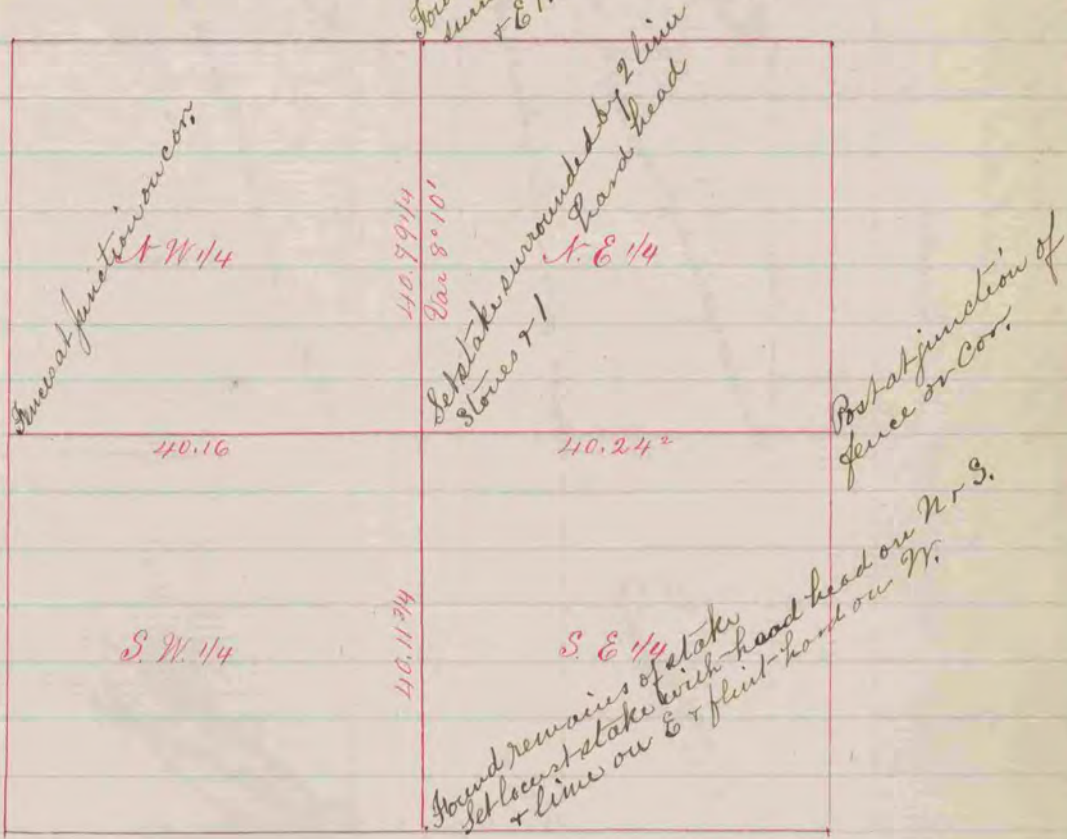 surr
& E
Fences at junction on cor.
N W 1/4
40.79 1/4
Var 8° 10'
Set stake surrounded by 2 lime
Stones & 1 hard head
N. E 1/4
Post at junction of
fence on Cor.
40.16
40.24²
S. W. 1/4
40.11 3/4
S. E 1/4
Found remains of stake
Set locust stake with haad head on N & S.
& lime on E & flint hard on W.